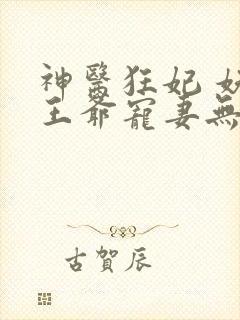 神醫狂妃
王爺寵妻無
古賀辰